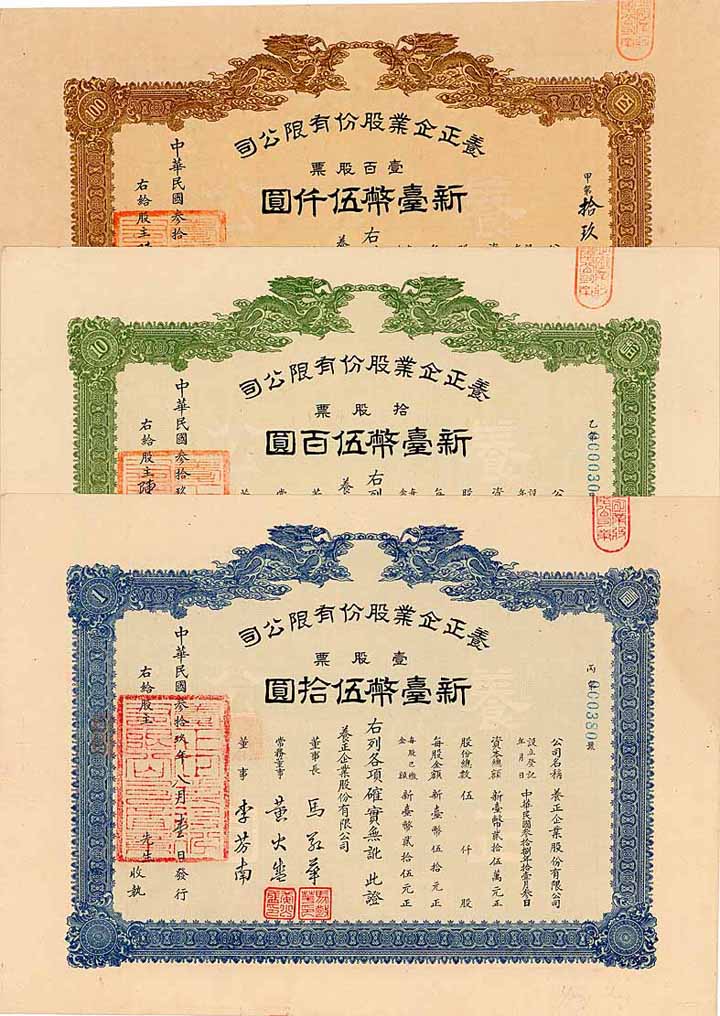 養正企業股份有限公司
壹百股票
新臺幣伍仟圓
100
甲第拾玖
中華民國叁拾
右給股主陳
右
養
養正企業股份有限公司
拾股票
新臺幣伍百圓
10
乙第00030
中華民國叁拾玖
右給股主陳
右列
養
養正企業股份有限公司
壹股票
新臺幣伍拾圓
1
丙第00380號
公司名稱 養正企業股份有限公司
設立登記年月日 中華民國叁拾捌年拾壹月叁日
資本總額 新臺幣貳拾伍萬元正
股份總數 伍仟股
每股金額 新臺幣伍拾元正
每股已繳金額 新臺幣貳拾伍元正
右列各項確實無訛此證
養正企業股份有限公司
董事長
常務董事 黃火
董事 李芳南
中華民國叁拾玖年八月壹日發行
右給股主 先生收執